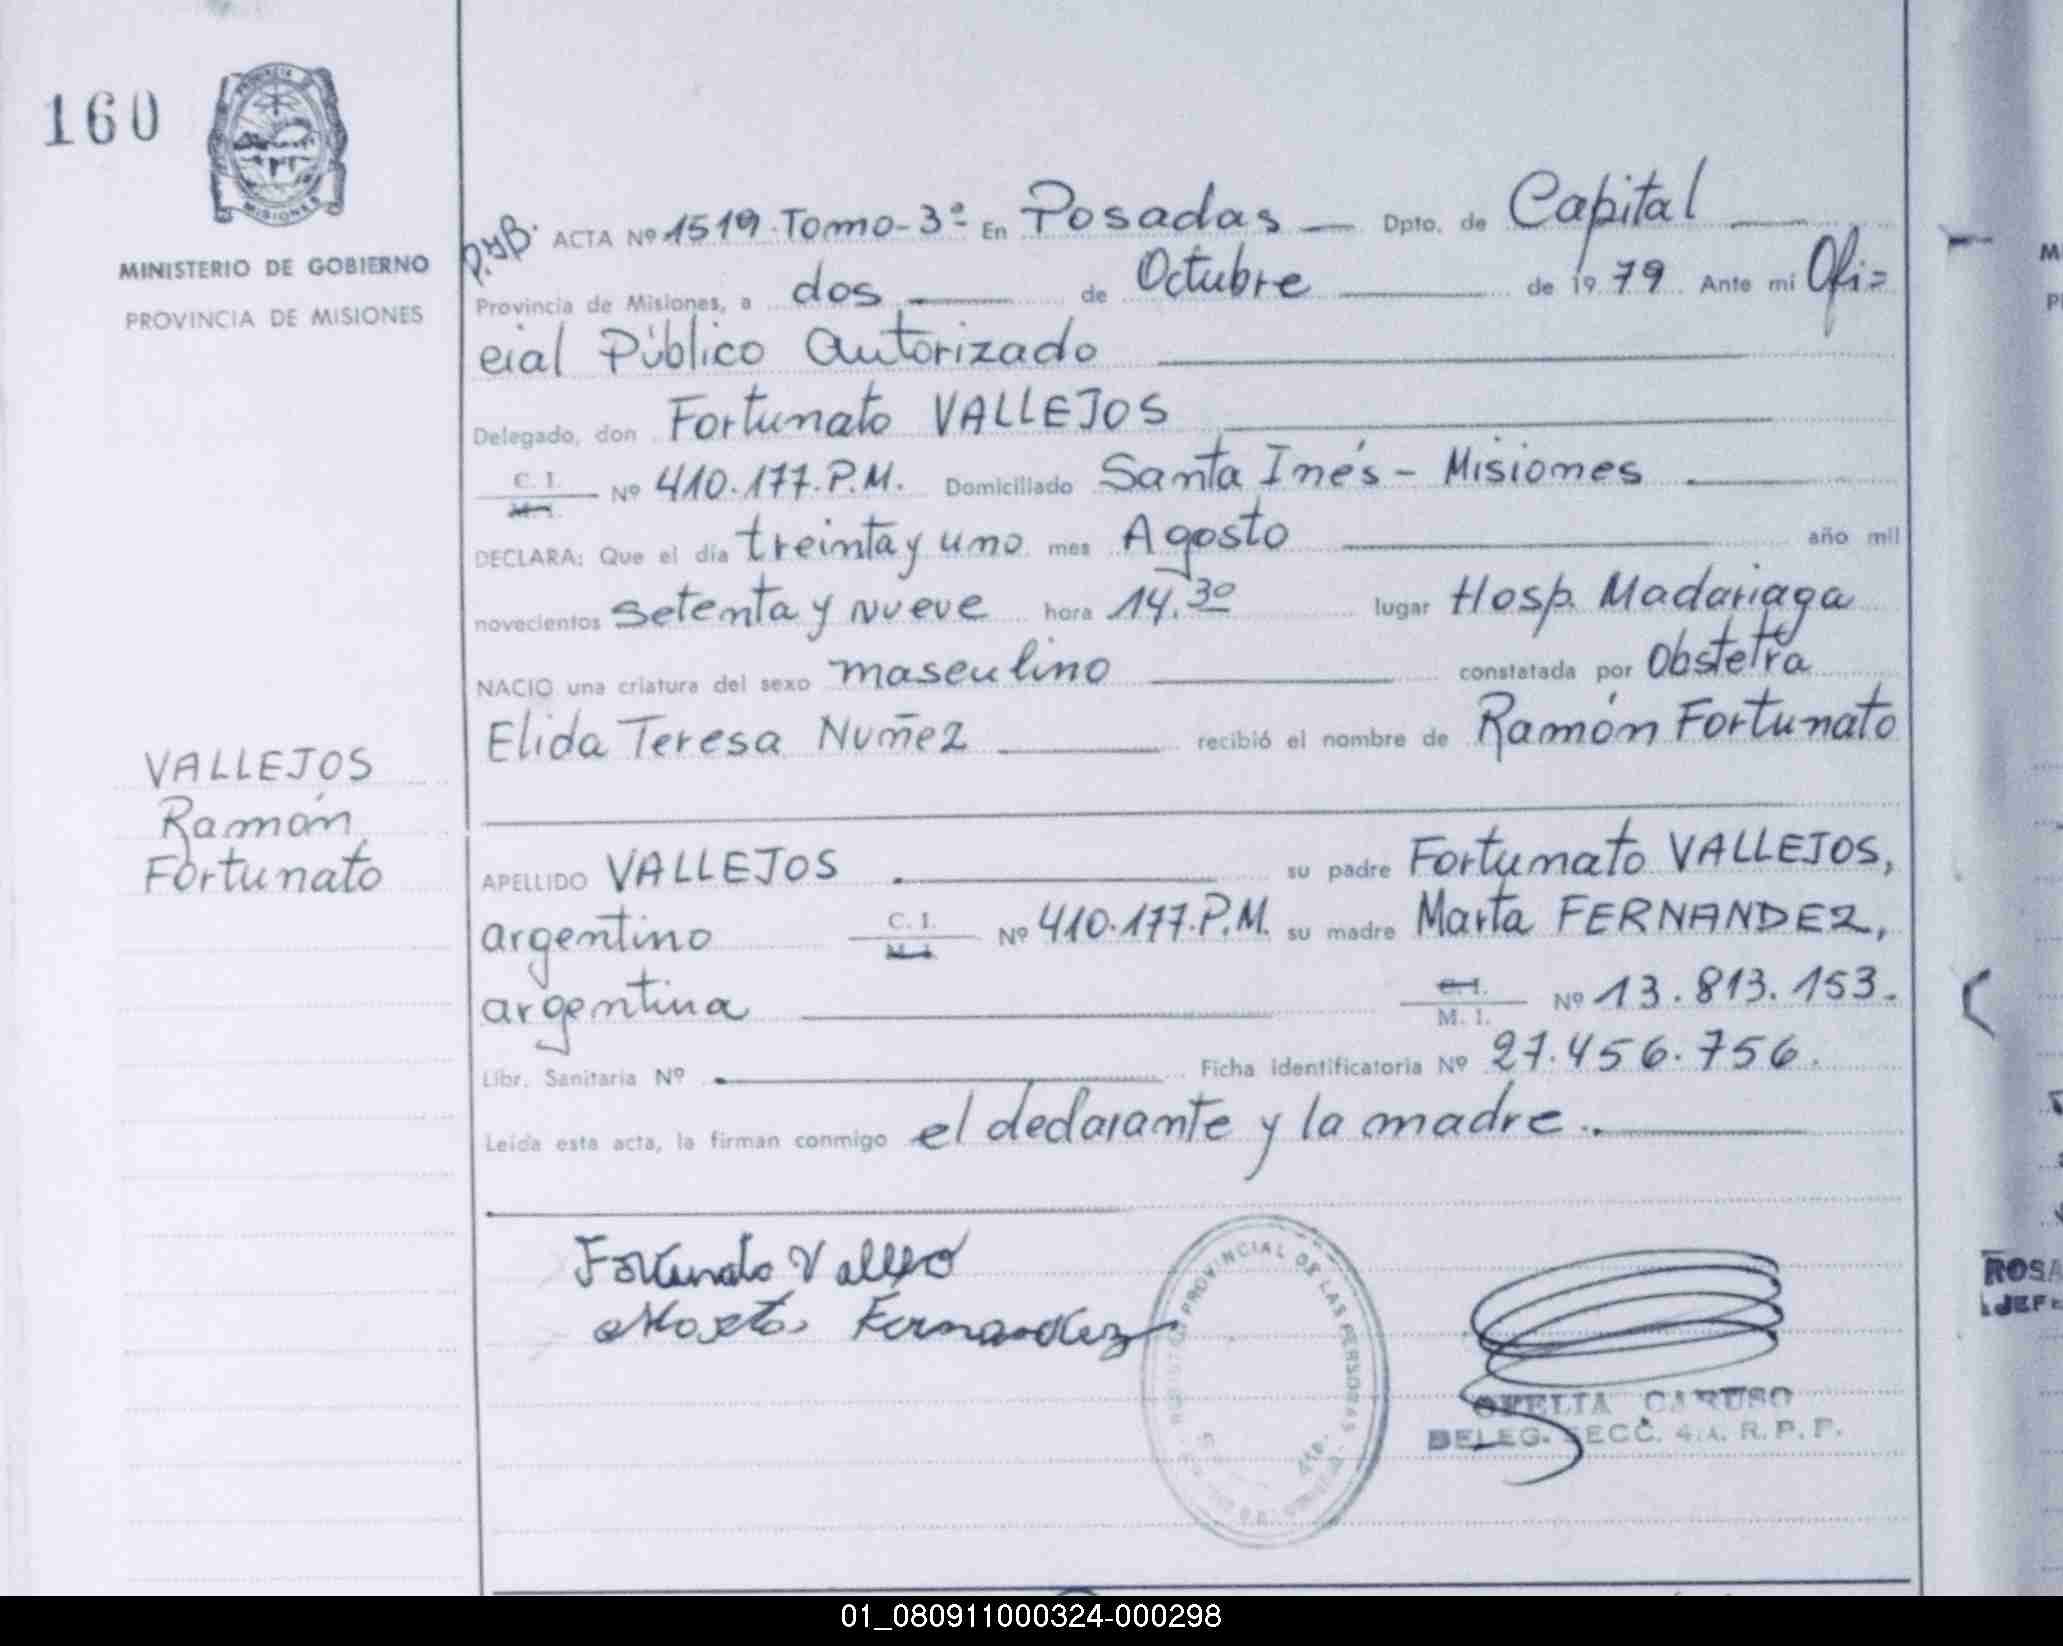 160
PROVINCIA DE
MISIONES
MINISTERIO DE GOBIERNO
PROVINCIA DE MISIONES
VALLEJOS
Ramón
Fortunato
P.yB. ACTA Nº 1519. Tomo-3º En Posadas Dpto. de Capital
Provincia de Misiones, a dos de Octubre de 1979 Ante mi Ofi=
cial Público Autorizado
Delegado, don Fortunato VALLEJOS
C. I.
M. I. Nº 410.177.P.M. Domiciliado Santa Inés - Misiones
DECLARA: Que el día treinta y uno mes Agosto año mil
novecientos setenta y nueve hora 14.30 lugar Hosp. Madariaga
NACIO una criatura del sexo masculino constatada por Obstetra
Elida Teresa Nuñez recibió el nombre de Ramón Fortunato
APELLIDO VALLEJOS su padre Fortunato VALLEJOS,
argentino C. I. M. I. Nº 410.177.P.M. su madre Marta FERNANDEZ,
argentina C. I. M. I. Nº 13.813.153.
Libr. Sanitaria Nº Ficha Identificatoria Nº 27.456.756.
Leída esta acta, la firman conmigo el declarante y la madre..
Fortunato Vallejo
Marta Fernandez
PROVINCIAL DE LAS PERSONAS
4ta.
OFELIA CARUSO
DELEG. SECC. 4.A. R. P. P.
ROSA
JEFE
01_080911000324-000298